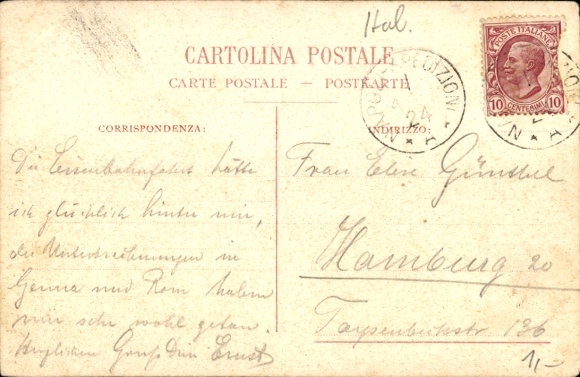 Ital.
CARTOLINA POSTALE
CARTE POSTALE — POSTKARTE
POSTE ITALIANE
10 CENTESIMI 10
NAPOLI SPEDIZIONI
CORRISPONDENZA:
INDIRIZZO:
Die Eisenbahnfahrt hätte
ich glücklich hinter mir,
die Unterbrechungen in
Genua und Rom haben
mir sehr wohl getan.
Herzlichen Gruß Dein Ernst
Frau Else
Hamburg 20
136
1,-